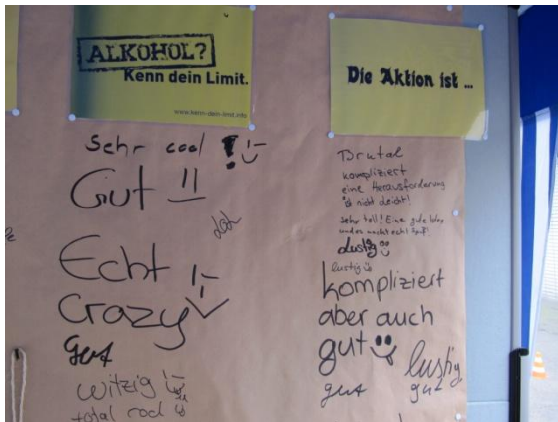 ALKOHOL?
Kenn dein Limit.
www.kenn-dein-limit.info
Sehr cool !
Gut !!
Echt
Crazy
gut
witzig
total
Die Aktion ist ...
Brutal
kompliziert
eine Herausforderung
is nicht leicht!
Sehr toll! Eine gute
und es macht echt
lustig
lustig
kompliziert
aber auch
gut
lustig
gut
gut